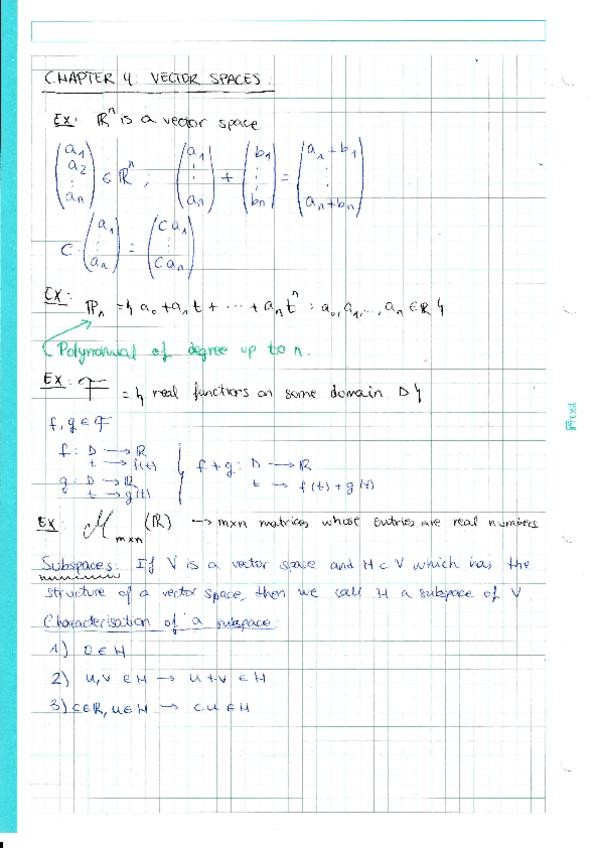 CHAPTER 4: VECTOR SPACES.
Ex: ℝⁿ is a vector space
(a₁ a₂ ⋮ aₙ) ∈ ℝⁿ ; (a₁ ⋮ aₙ) + (b₁ ⋮ bₙ) = (a₁ + b₁ ⋮ aₙ + bₙ)
C · (a₁ ⋮ aₙ) = (Ca₁ ⋮ Caₙ)
Ex: ℙₙ = { a₀ + a₁t + ⋯ + aₙtⁿ : a₀, a₁, ..., aₙ ∈ ℝ }
Polynomial of degree up to n.
Ex: F = { real functions on some domain D }
f, g ∈ F
f: D → ℝ
t → f(t)
g: D → ℝ
t → g(t)
f + g: D → ℝ
t → f(t) + g(t)
Ex: M m×n (ℝ) → m×n matrices whose entries are real numbers
Subspaces: If V is a vector space and H ⊂ V which has the
structure of a vector space, then we call H a subpace of V
Characterisation of a subspace:
1) 0 ∈ H
2) u, v ∈ H → u + v ∈ H
3) c ∈ ℝ, u ∈ H → c·u ∈ H